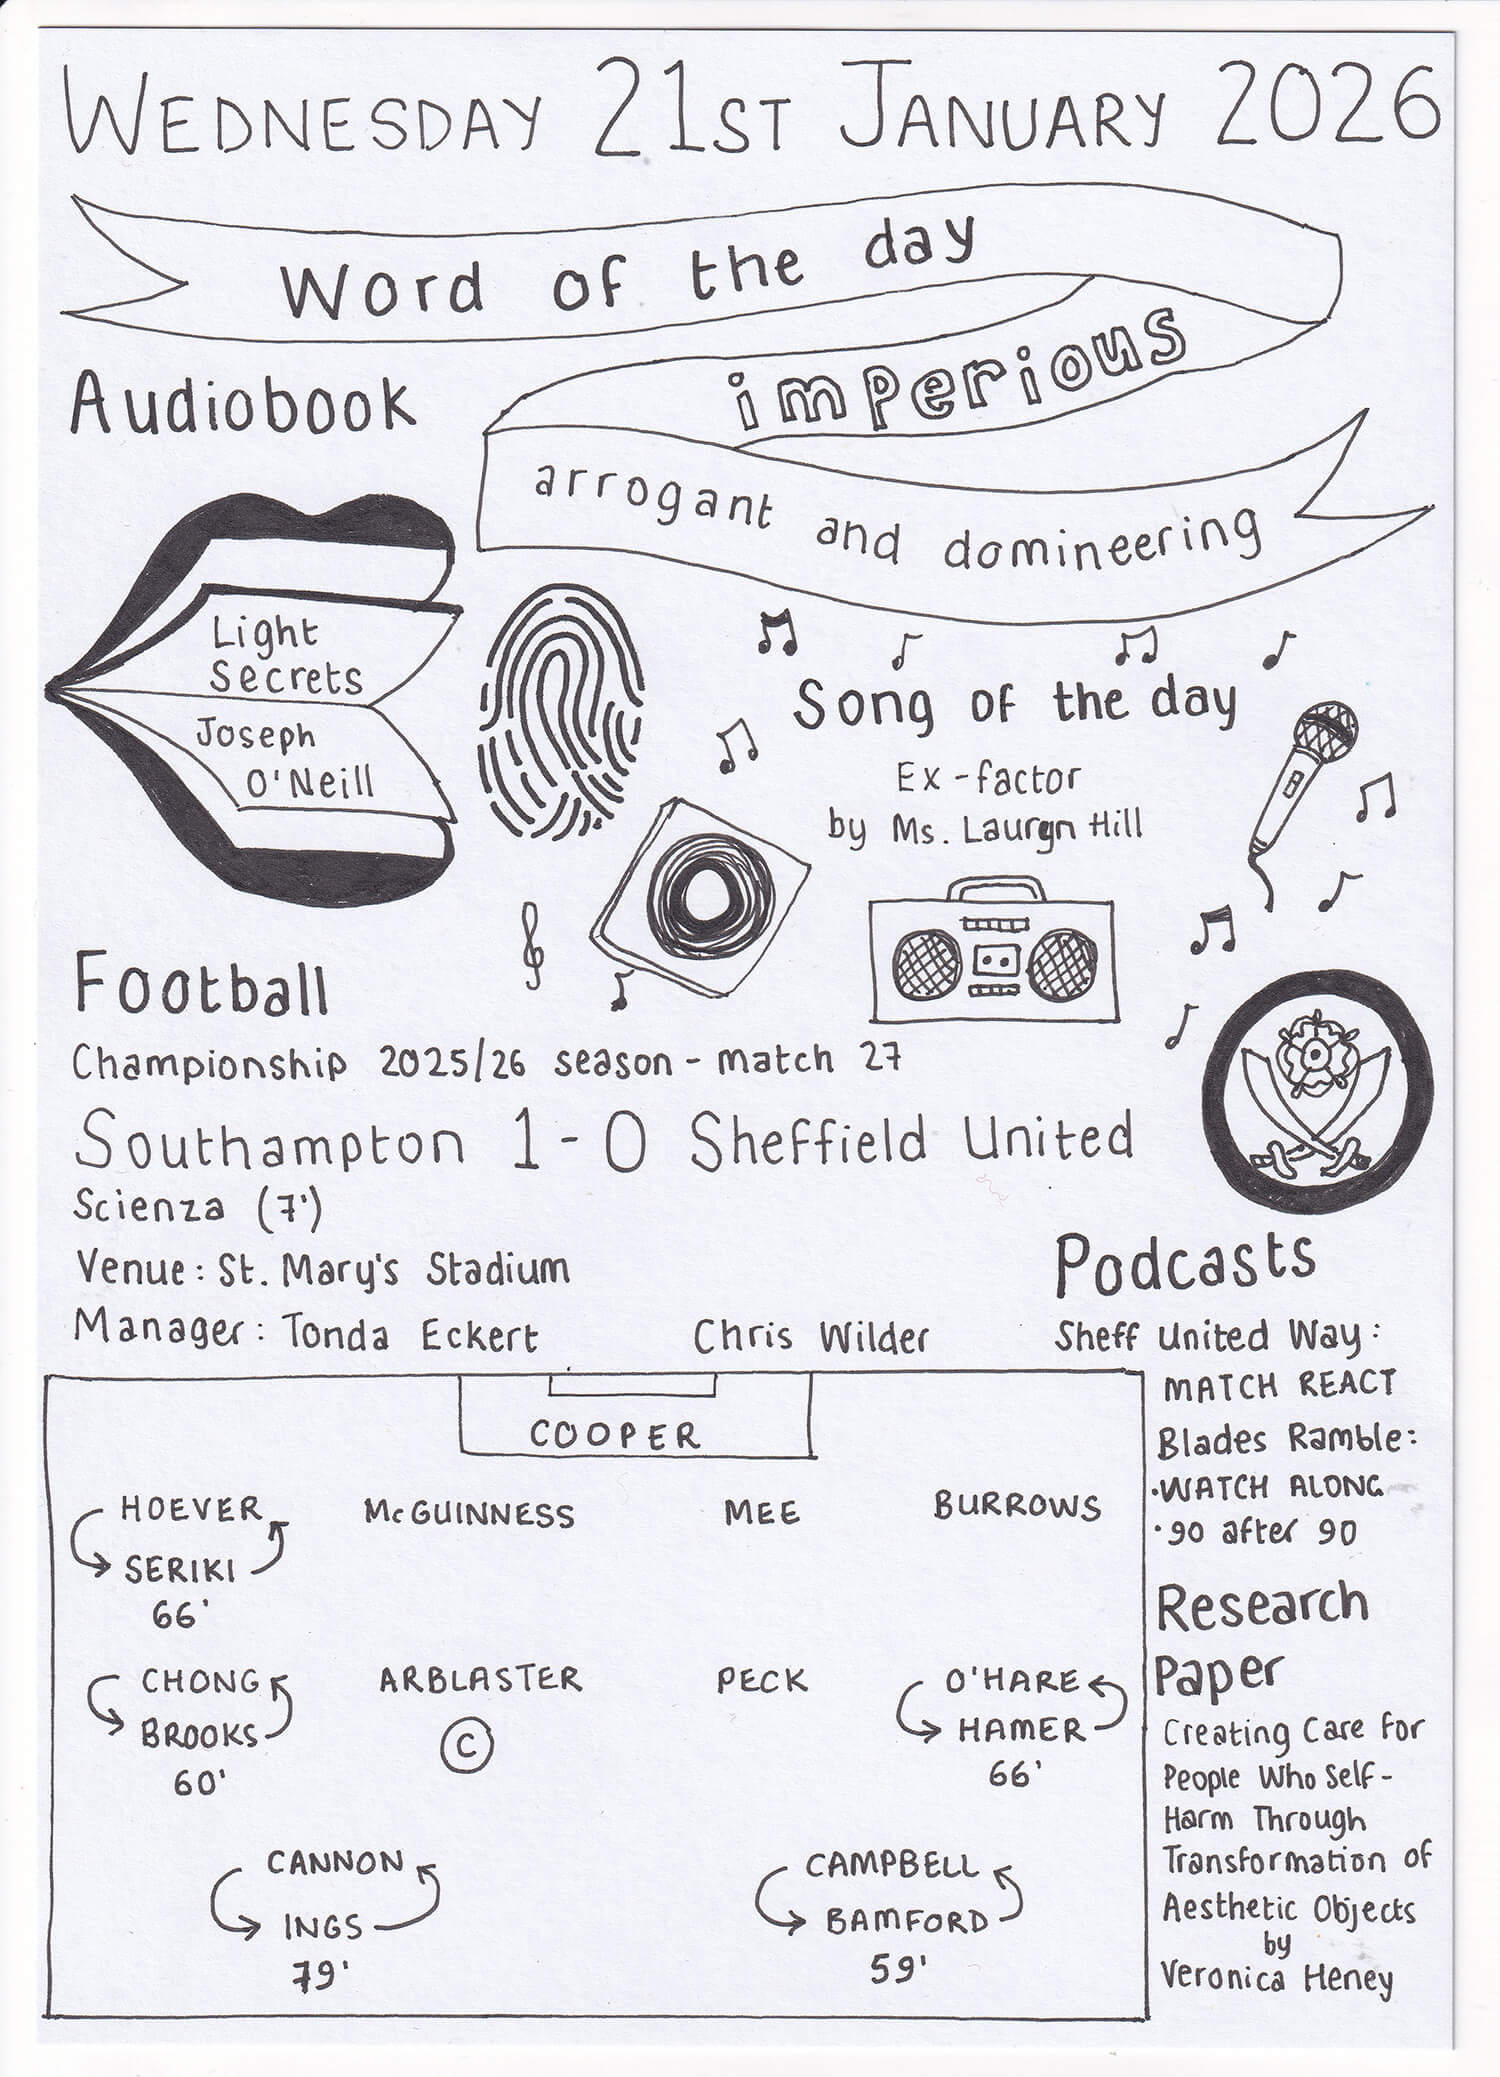 WEDNESDAY 21ST JANUARY 2026
Word of the day
imperious
arrogant and domineering
Audiobook
Light
Secrets
Joseph
O'Neill
Song of the day
Ex-factor
by Ms. Lauryn Hill
Football
Championship 2025/26 season - match 27
Southampton 1-0 Sheffield United
Scienza (7')
Venue: St. Mary's Stadium
Manager: Tonda Eckert Chris Wilder
COOPER
HOEVER McGUINNESS MEE BURROWS
SERIKI
66'
CHONG ARBLASTER PECK O'HARE
BROOKS C HAMER
60' 66'
CANNON CAMPBELL
INGS BAMFORD
79' 59'
Podcasts
Sheff United Way:
MATCH REACT
Blades Ramble:
·WATCH ALONG
·90 after 90
Research
Paper
Creating Care For
People Who Self-
Harm Through
Transformation of
Aesthetic Objects
by
Veronica Heney